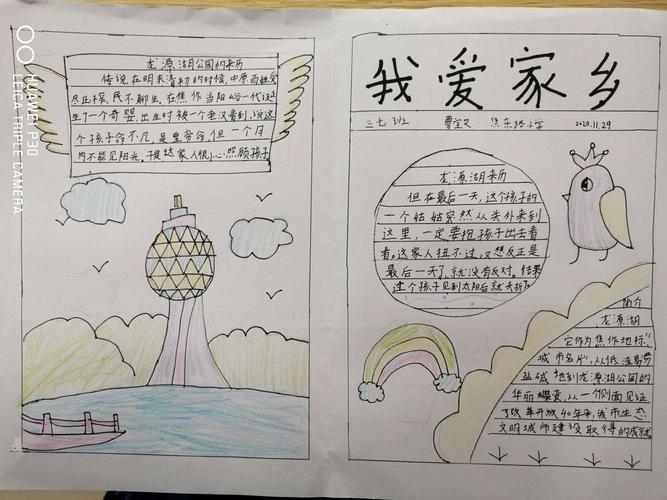 HUAWEI P30
LEICA TRIPLE CAMERA
龙源湖公园的来历
传说在明末清初的时候,中原百姓受
尽压榨,民不聊生,在焦作当阳峪一代诞
生了一个奇婴,出生时被一个老汉看到,说这
个孩子命不凡,是皇帝命,但一个月
内不能见阳光。于是这家人很小心照顾孩子
我爱家乡
三七班
焦东路小学
2020.11.29
龙源湖来历
但在最后一天,这个孩子的
一个姑姑突然从关外来到
这里,一定要抱孩子出去看
看。这家人扭不过,又想反正是
最后一天了,就没有反对。结果
这个孩子见到太阳后就夭折了
简介
龙源湖
它作为焦作地标,
城市名片",从低洼易涝
盐碱地到龙源湖公园的
华丽蝶变,从一个侧面见证
了改革开放40年来,我市生态
文明城市建设取得的成就